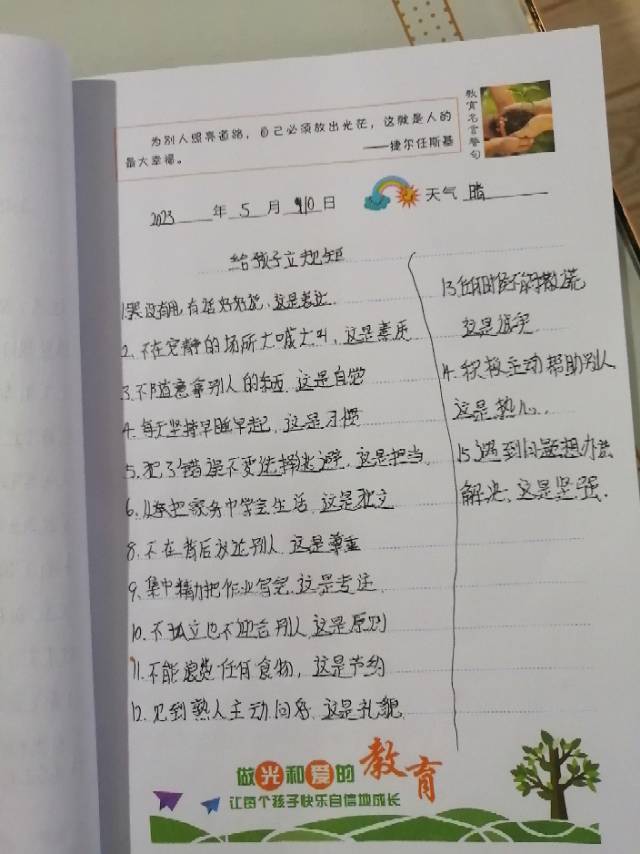 为别人照亮道路，自己必须放出光茫，这就是人的
最大幸福。
——捷尔任斯基
教育名言警句
2023年5月10日
天气 晴
给孩子立规矩
1.哭没有用，有话好好说，这是表达
2.不在安静的场所大喊大叫，这是素质
3.不随意拿别人的东西，这是自觉
4.每天坚持早睡早起，这是习惯
5.犯了错误不要选择逃避，这是担当
6.从家务中学会生活，这是独立
8.不在背后议论别人，这是尊重
9.集中精力把作业写完，这是专注
10.不孤立也不迎合别人，这是原则
11.不能浪费任何食物，这是节约
12.见到熟人主动问好，这是礼貌
13.任何时候不能撒谎
这是诚实
14.积极主动帮助别人
这是热心
15.遇到问题想办法
解决，这是坚强.
做光和爱的教育
让每个孩子快乐自信地成长